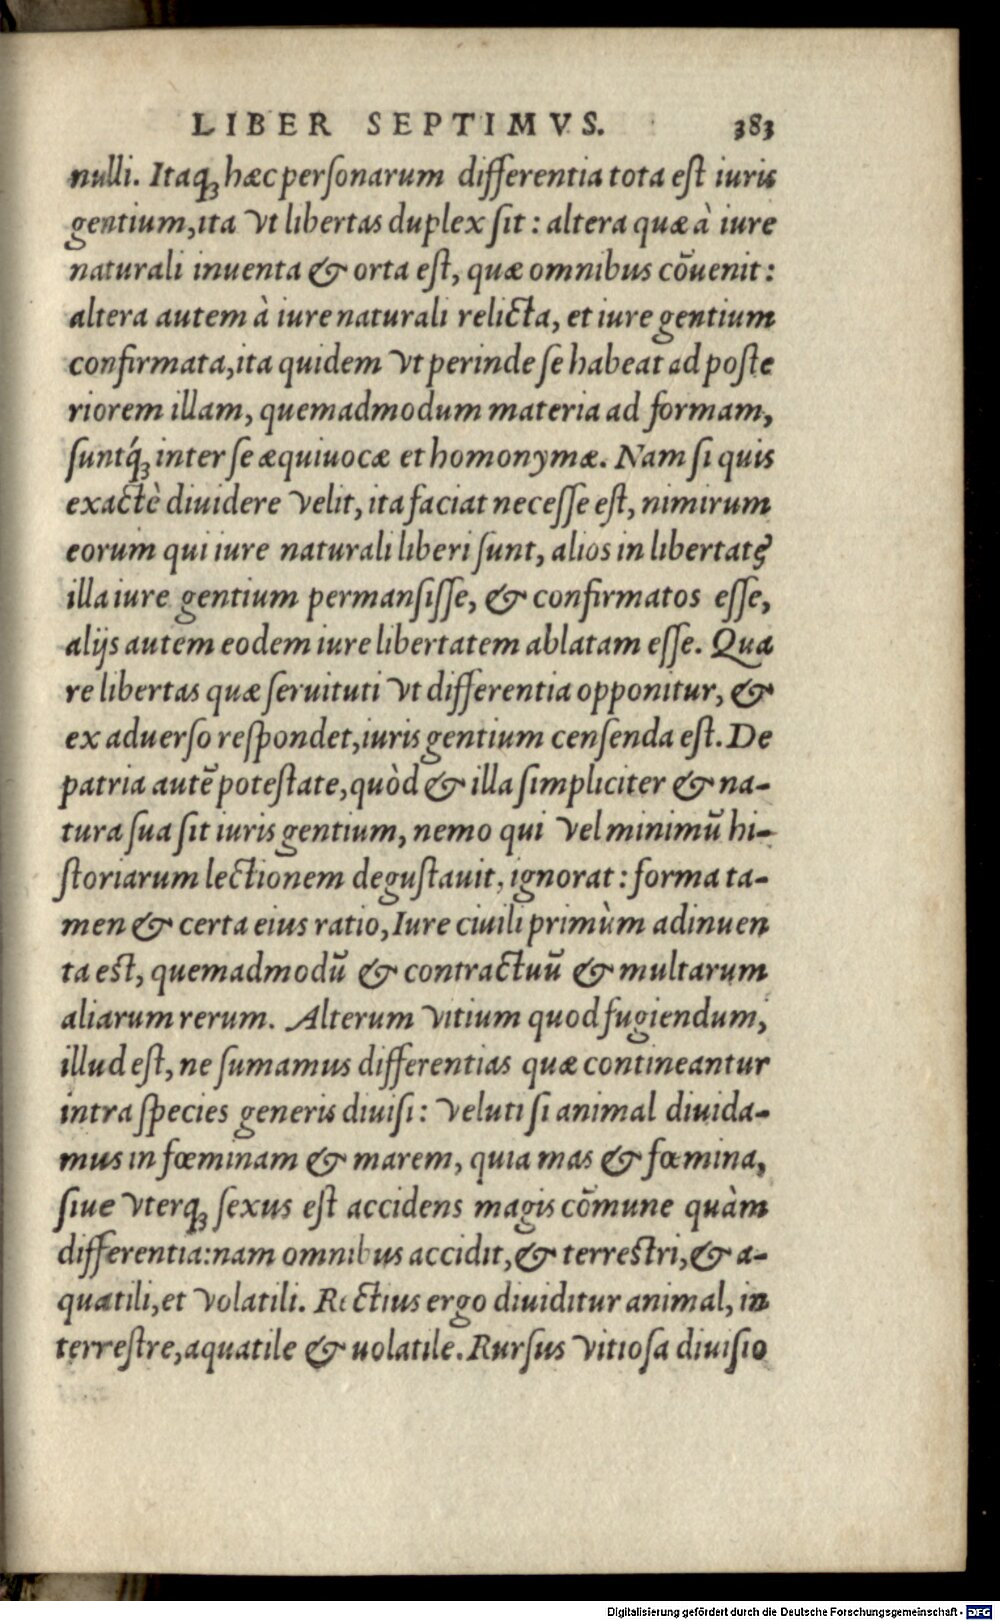 LIBER SEPTIMVS. 383
nulli. Itaq́; hæc perſonarum differentia tota eſt iuris
gentium, ita vt libertas duplex ſit: altera quæ à iure
naturali inuenta & orta eſt, quæ omnibus cõuenit:
altera autem à iure naturali relicta, et iure gentium
confirmata, ita quidem vt perinde ſe habeat ad poſte
riorem illam, quemadmodum materia ad formam,
ſuntq́; inter ſe æquiuocæ et homonymæ. Nam ſi quis
exactè diuidere velit, ita faciat neceſſe eſt, nimirum
eorum qui iure naturali liberi ſunt, alios in libertate
illa iure gentium permanſiſſe, & confirmatos eſſe,
alijs autem eodem iure libertatem ablatam eſſe. Qua
re libertas quæ ſeruituti vt differentia opponitur, &
ex aduerſo reſpondet, iuris gentium cenſenda eſt. De
patria autẽ poteſtate, quòd & illa ſimpliciter & na-
tura ſua ſit iuris gentium, nemo qui vel minimũ hi-
ſtoriarum lectionem deguſtauit, ignorat: forma ta-
men & certa eius ratio, Iure ciuili primùm adinuen
ta eſt, quemadmodũ & contractuũ & multarum
aliarum rerum. Alterum vitium quod fugiendum,
illud eſt, ne ſumamus differentias quæ contineantur
intra ſpecies generis diuiſi: veluti ſi animal diuida-
mus in fœminam & marem, quia mas & fœmina,
ſiue vterq; ſexus eſt accidens magis cõmune quàm
differentia: nam omnibus accidit, & terreſtri, & a-
quatili, et volatili. Rectius ergo diuiditur animal, in
terreſtre, aquatile & uolatile. Rurſus vitioſa diuiſio
Digitalisierung gefördert durch die Deutsche Forschungsgemeinschaft - DFG